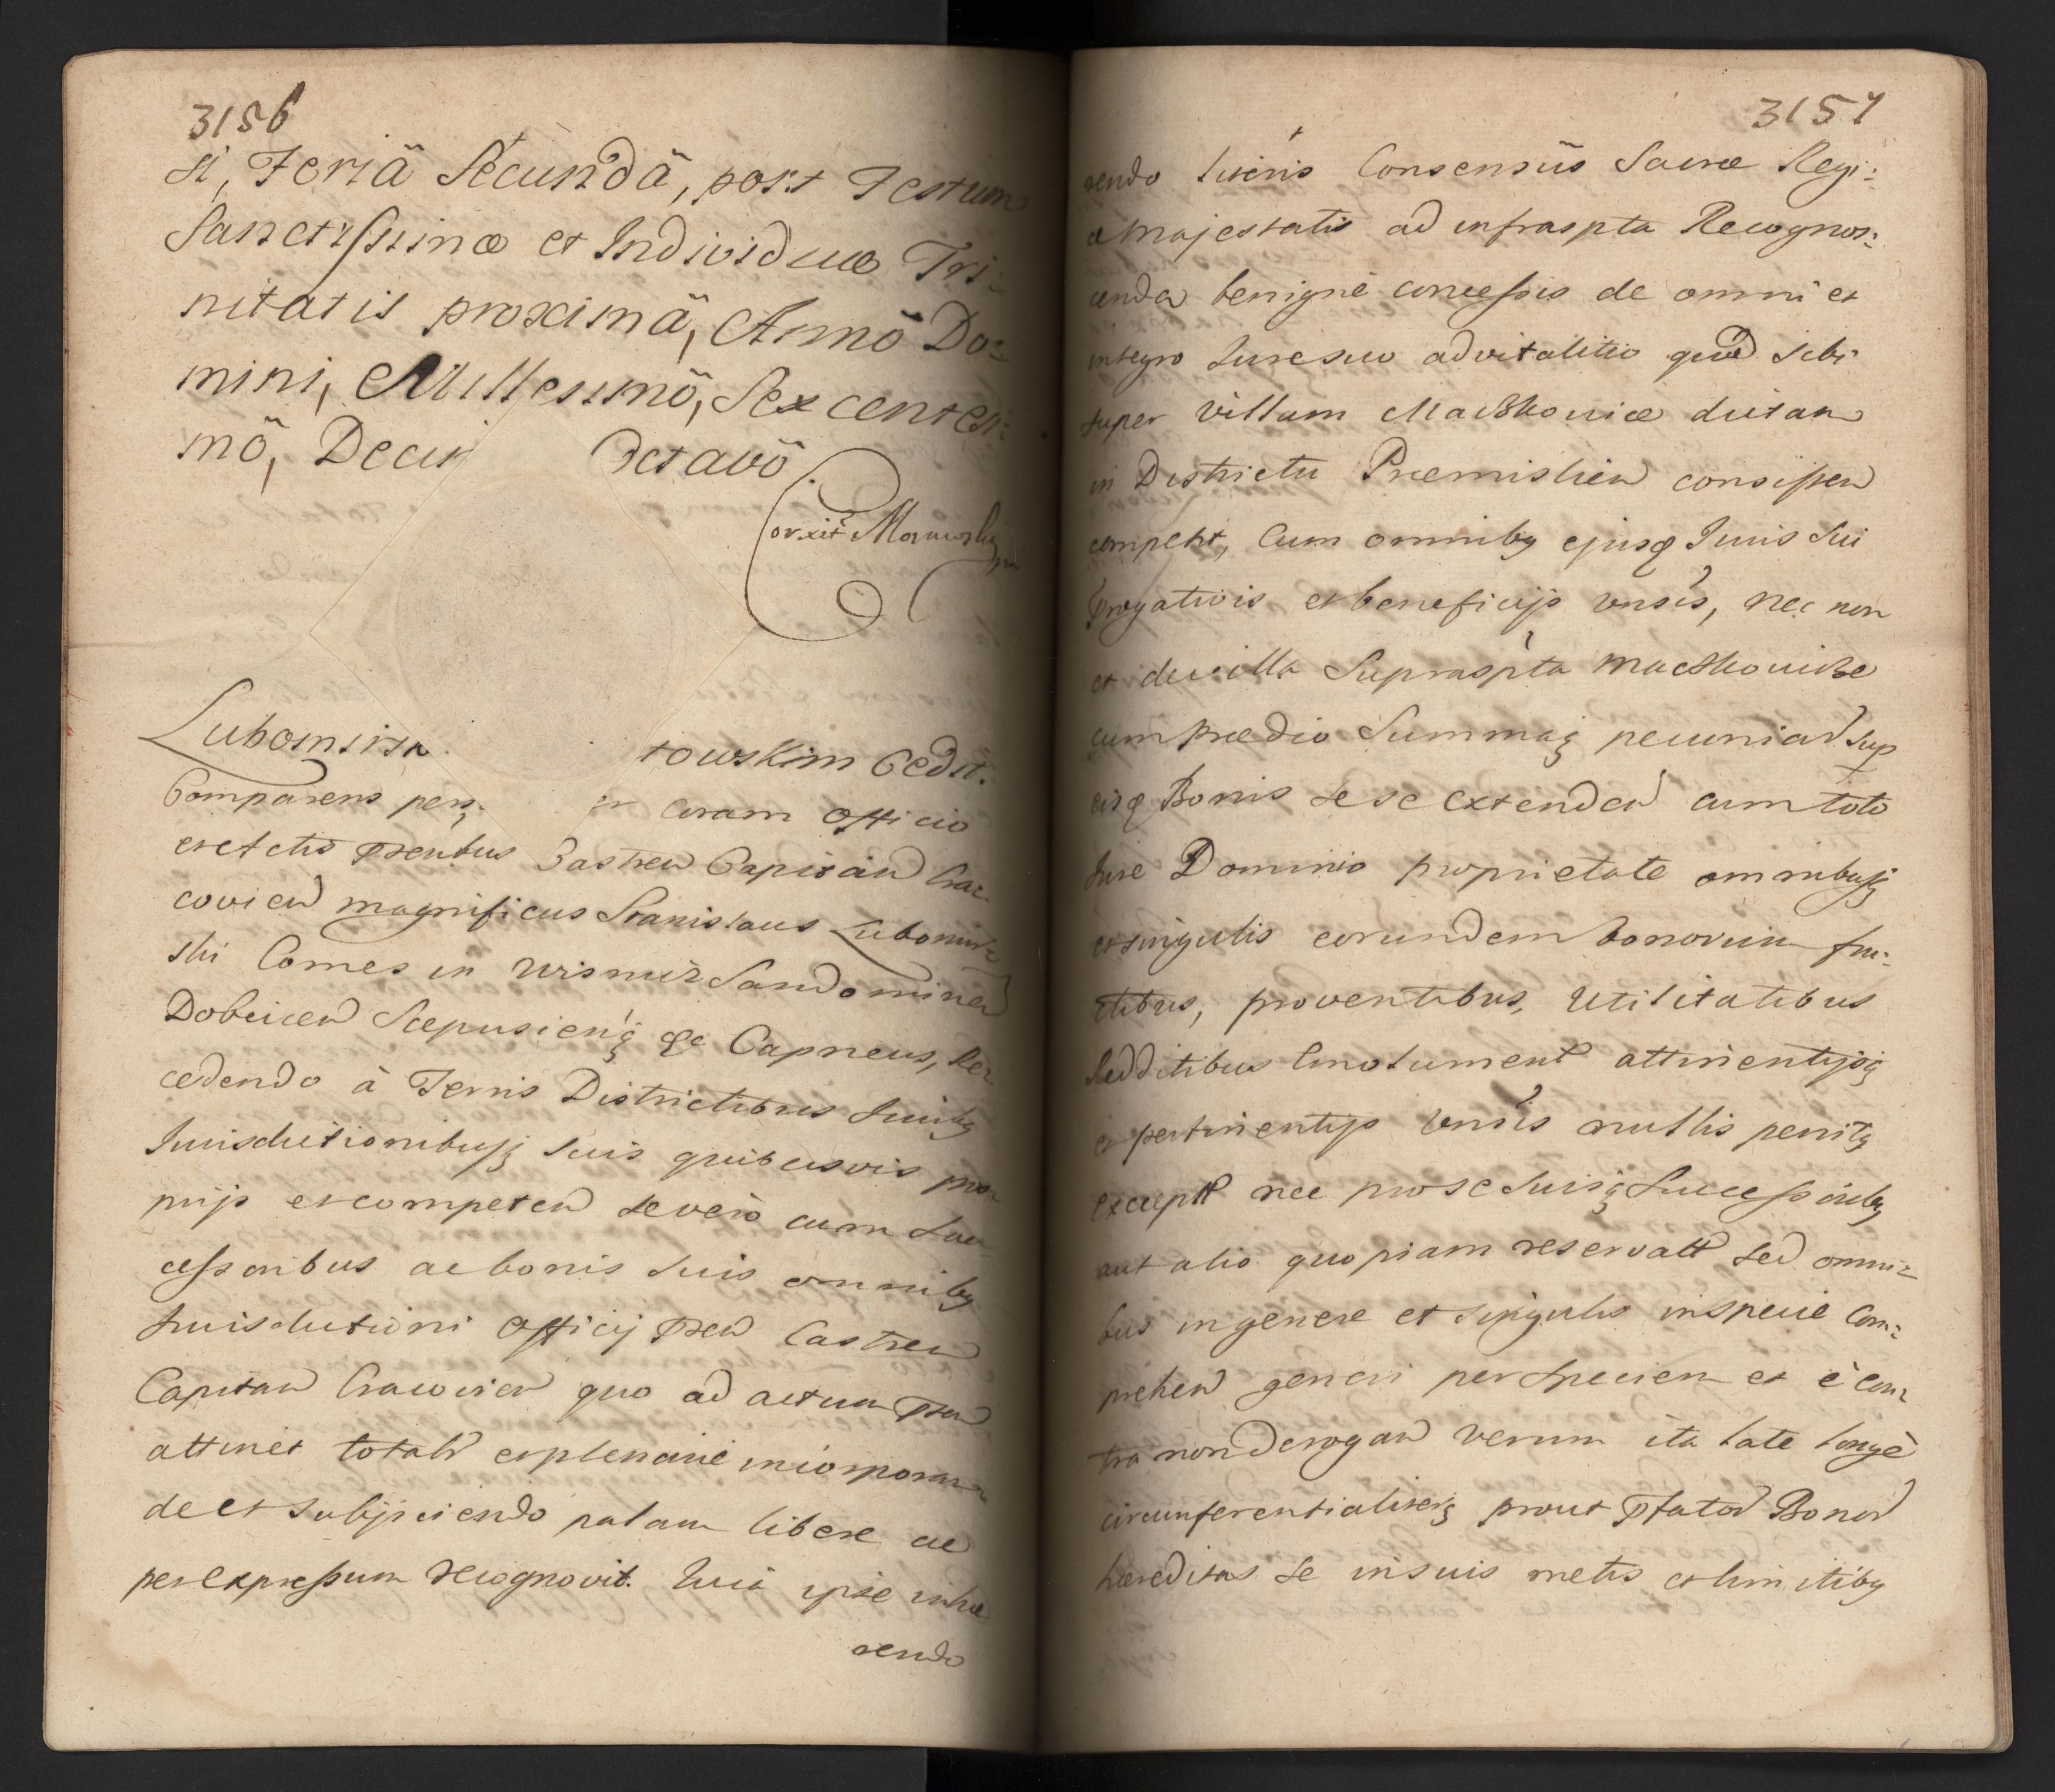 3156
si, Feriâ Secundâ, post Festum
Sanctissimæ et Individuæ Tri=
nitatis proximâ, Annô Do=
mini, Millesimô, Sexcentesi=
mô, Deci Octavô
Corxit
Lubomirsk towskim Cedit.
Comparens pers. er Coram Officio
et actis Pꝛntibus Castren Capitan Cra=
covien magnificus Stanislaus Lubomir=
ski Comes in Wisnicz Sandomirien
Dobcicen Scepusien'q̃ &c Capneus, Re=
cedendo à Terris Districtibus Juribq
Jurisdictionibusq̃ suis quibusvis pro=
prijs et competen se verò cum Suc=
cessoribus ac bonis suis omnibq
Jurisdictioni Officij Pꝛn Castren
Capitan Cracovien quo ad actum Pꝛn
attinet totalr et plenarie incorporan=
de et subijciendo palam libere ac
per expressum recognovit. Quia ipse inhæ
rendo
3157
rendo literis Consensûs Sacræ Regi=
æ Majestatis ad infraspta Recognos=
cenda benignè concessis de omni et
integro Jure suo advitalitio quod sibi
super villam Maćkowice dictam
in Districtu Præmislien consisten
competit, Cum omnibq ejusq Juris Sui
prerogativis et beneficijs vnsis, nec non
et de villa Supraspta Maćkowice
cum prædio Summaq̃ pecuniar sup
eisq Bonis sese extenden cum toto
Jure Dominio proprietate omnibusq̃
et singulis eorundem bonorum fru=
ctibus, proventibus, Utilitatibus
Redditibus Emolument attinentijsq̃
et pertinentijs vnsis nullis penitq
except nec pro se suisq̃ Successoribq
aut alio quopiam reservatt sed omni=
bus in genere et singulis in specie com=
prehen generi per speciem et è con=
tra non derogan verum ita late longè
circumferentialiterq̃ prout Pꝼator Bonor
hæreditas se in suis metis et limitibq